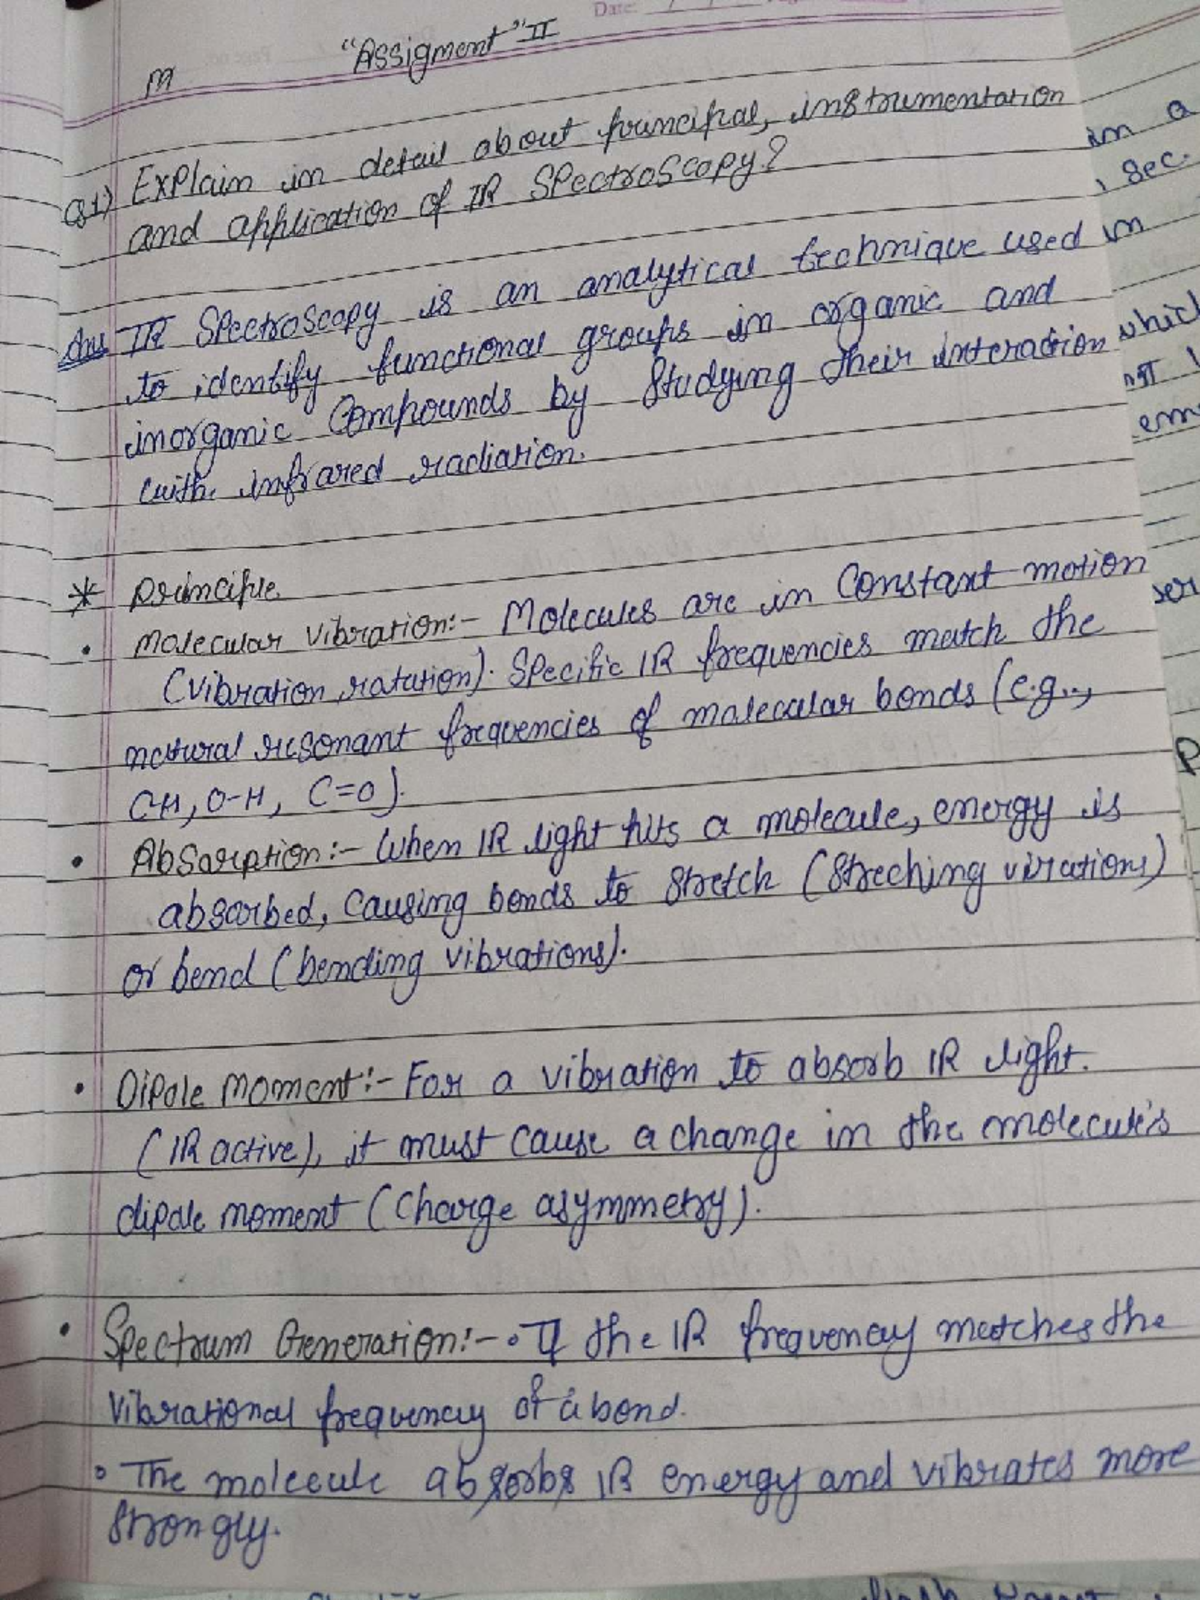 Date:
"Assigment" II
M
Q1) Explain in detail about principal, instrumentation
and application of IR Spectroscopy?
Ans IR Spectroscopy is an analytical technique used in
to identify functional groups in organic and
inorganic Compounds by Studying their interaction
with infrared radiation.
* principle
• Molecular Vibration:- Molecules are in Constant motion
(Vibration, rotation). Specific IR frequencies match the
natural resonant frequencies of molecular bonds (e.g.,
C-H, O-H, C=O).
• Absorption:- When IR light hits a molecule, energy is
absorbed, causing bonds to stretch (Streching virations)
or bend (bending vibrations).
• Dipole Moment:- For a vibration to absorb IR light.
(IR active), it must cause a change in the molecule's
dipole moment (Charge asymmetry).
• Spectrum Generation:- • If the IR frequency matches the
Vibrational frequency of a bond.
• The molecule absorbs IR energy and vibrates more
strongly.
in a
, Sec.
which